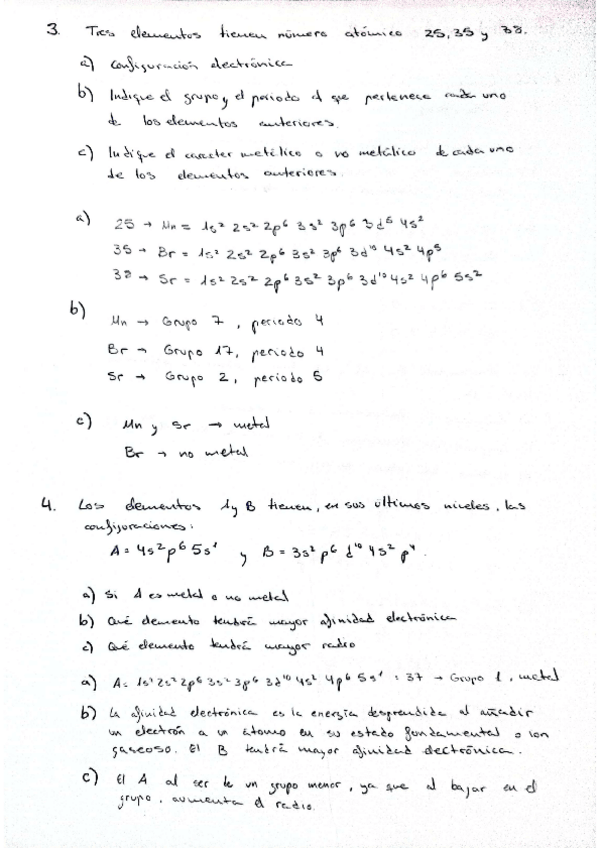 3. Tres elementos tienen número atómico 25, 35 y 38.
a) Configuración electrónica
b) Indique el grupo y el periodo al que pertenece cada uno
de los elementos anteriores.
c) Indique el carácter metálico o no metálico de cada uno
de los elementos anteriores.
a) 25 → Mn = 1s² 2s² 2p⁶ 3s² 3p⁶ 3d⁵ 4s²
35 → Br = 1s² 2s² 2p⁶ 3s² 3p⁶ 3d¹⁰ 4s² 4p⁵
38 → Sr = 1s² 2s² 2p⁶ 3s² 3p⁶ 3d¹⁰ 4s² 4p⁶ 5s²
b) Mn → Grupo 7, periodo 4
Br → Grupo 17, periodo 4
Sr → Grupo 2, periodo 5
c) Mn y Sr → metal
Br → no metal
4. Los elementos A y B tienen, en sus últimos niveles, las
configuraciones:
A = 4s² p⁶ 5s¹ y B = 3s² p⁶ d¹⁰ 4s² p⁴.
a) Si A es metal o no metal
b) Qué elemento tendrá mayor afinidad electrónica
c) Qué elemento tendrá mayor radio
a) A = 1s² 2s² 2p⁶ 3s² 3p⁶ 3d¹⁰ 4s² 4p⁶ 5s¹ : 37 → Grupo 1, metal
b) La afinidad electrónica es la energía desprendida al añadir
un electrón a un átomo en su estado fundamental o ion
gaseoso. El B tendrá mayor afinidad electrónica.
c) El A al ser de un grupo menor, ya que al bajar en el
grupo, aumenta el radio.